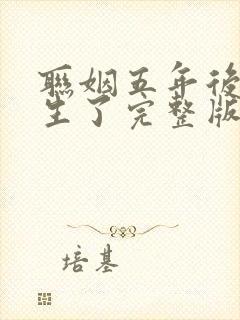 聯姻五年後
生了完整版
培基